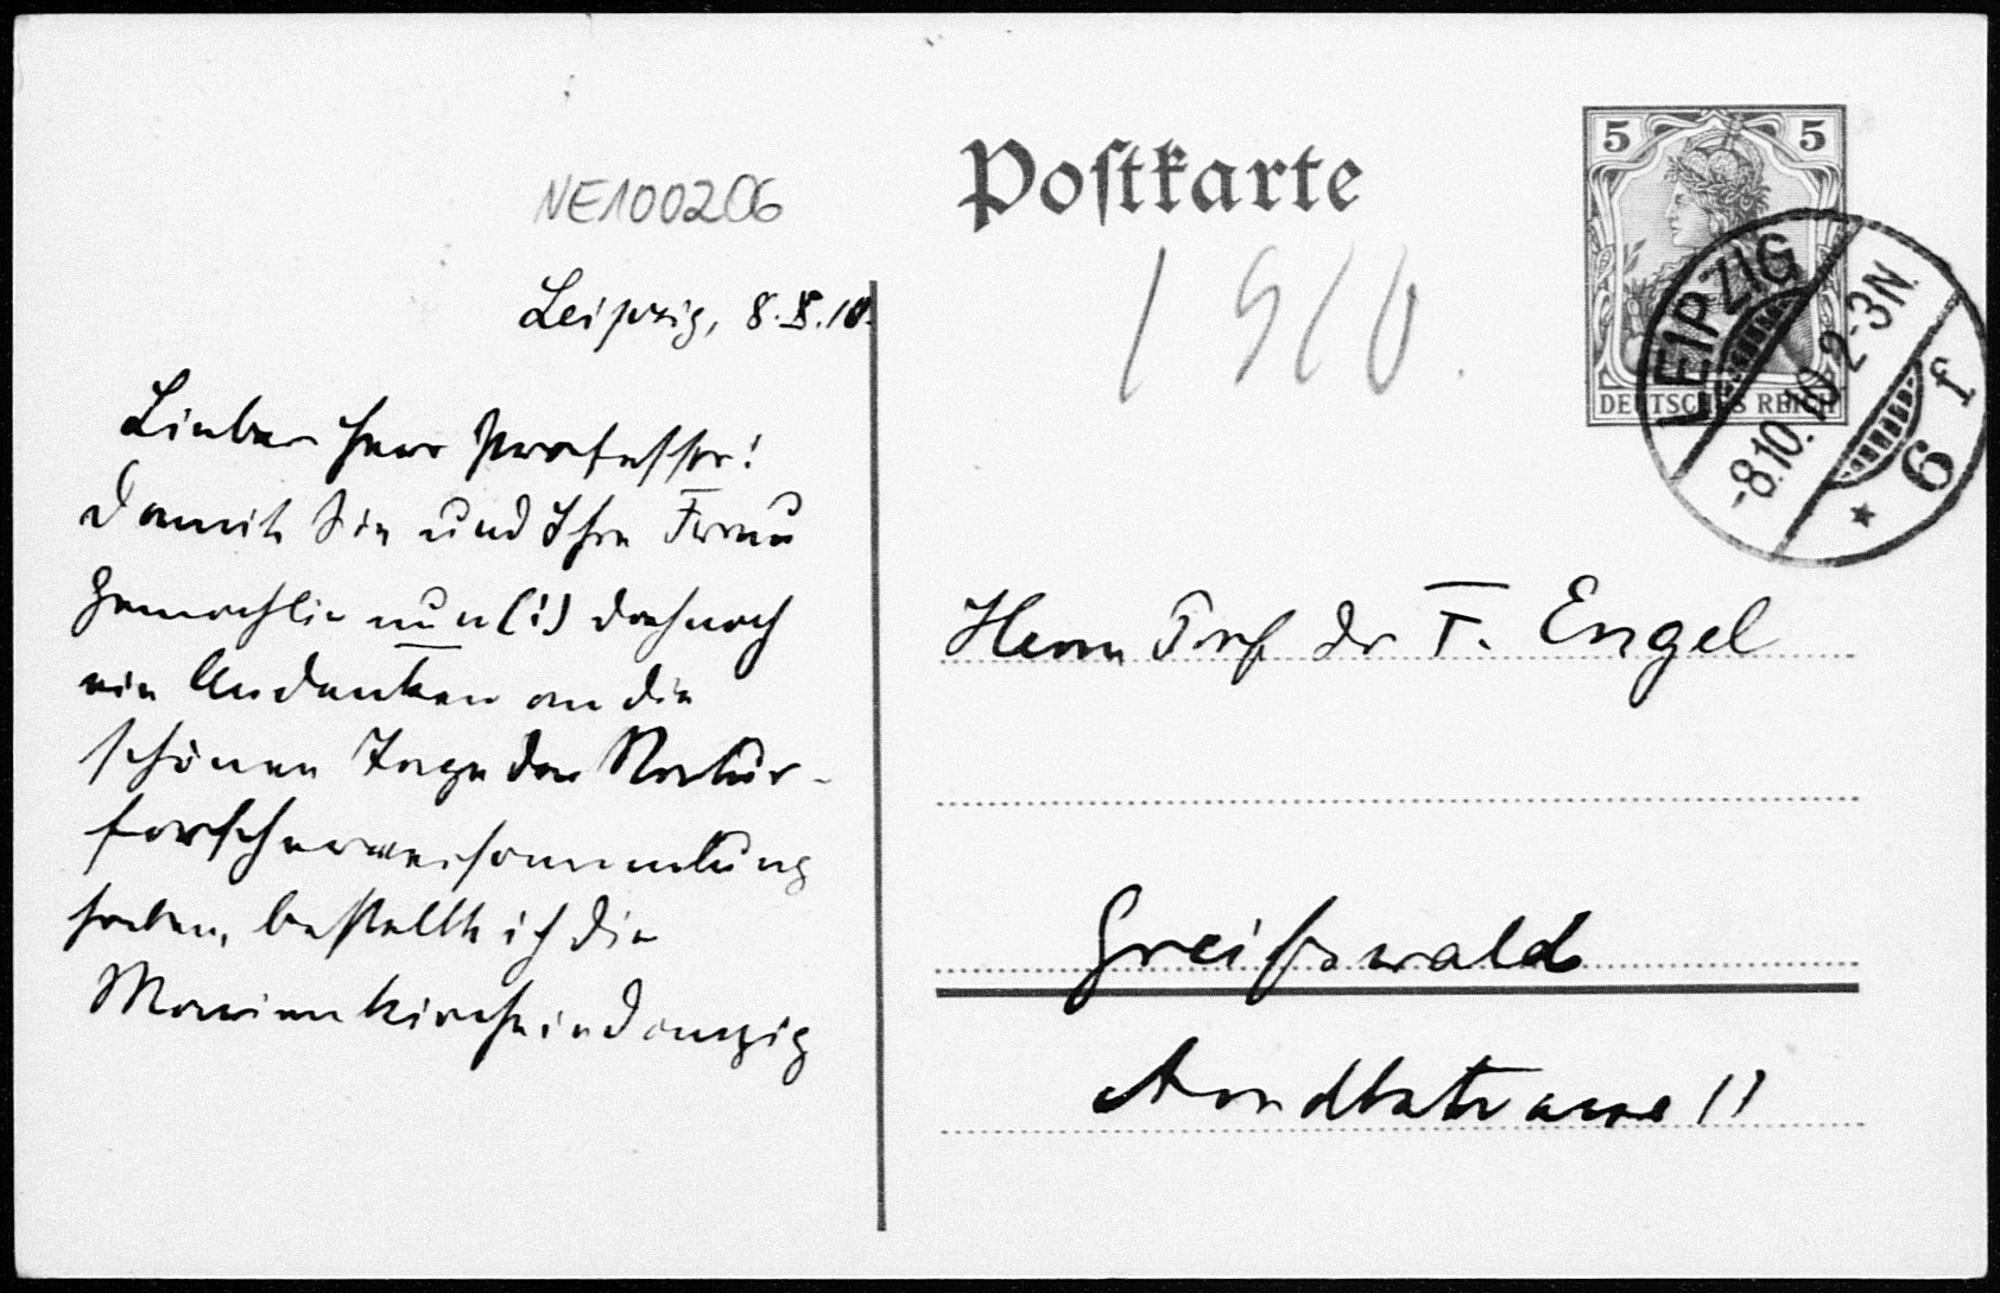 NE100206
Leipzig, 8.X.10.
Lieber Herr Professor!
Damit Sie und Ihre Frau
Gemahlin nun(!) doch noch
ein Andenken an die
schönen Tage der Natur-
forscherversammlung
haben, bestellte ich die
Marienkirche in Danzig
Postkarte
1910.
5 5
DEUTSCHES REICH
LEIPZIG
-8.10.10.2-3N.
* 6 f
Herrn Prof Dr F. Engel
Greifswald
Arndtstrasse 11